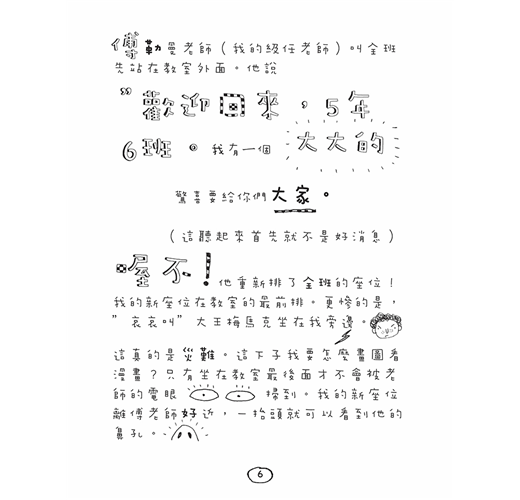 傅勒曼老師（我的級任老師）叫全班
先站在教室外面。他說
”歡迎回來，5年
6班。我有一個 大大的
驚喜要給你們大家。
（這聽起來首先就不是好消息）
喔不！他重新排了全班的座位！
我的新座位在教室的最前排。更慘的是，
”哀哀叫”大王梅馬克坐在我旁邊。
這真的是災難。這下子我要怎麼畫圖看
漫畫？只有坐在教室最後面才不會被老
師的電眼 掃到。我的新座位
離傅老師好近，一抬頭就可以看到他的
鼻孔。
6